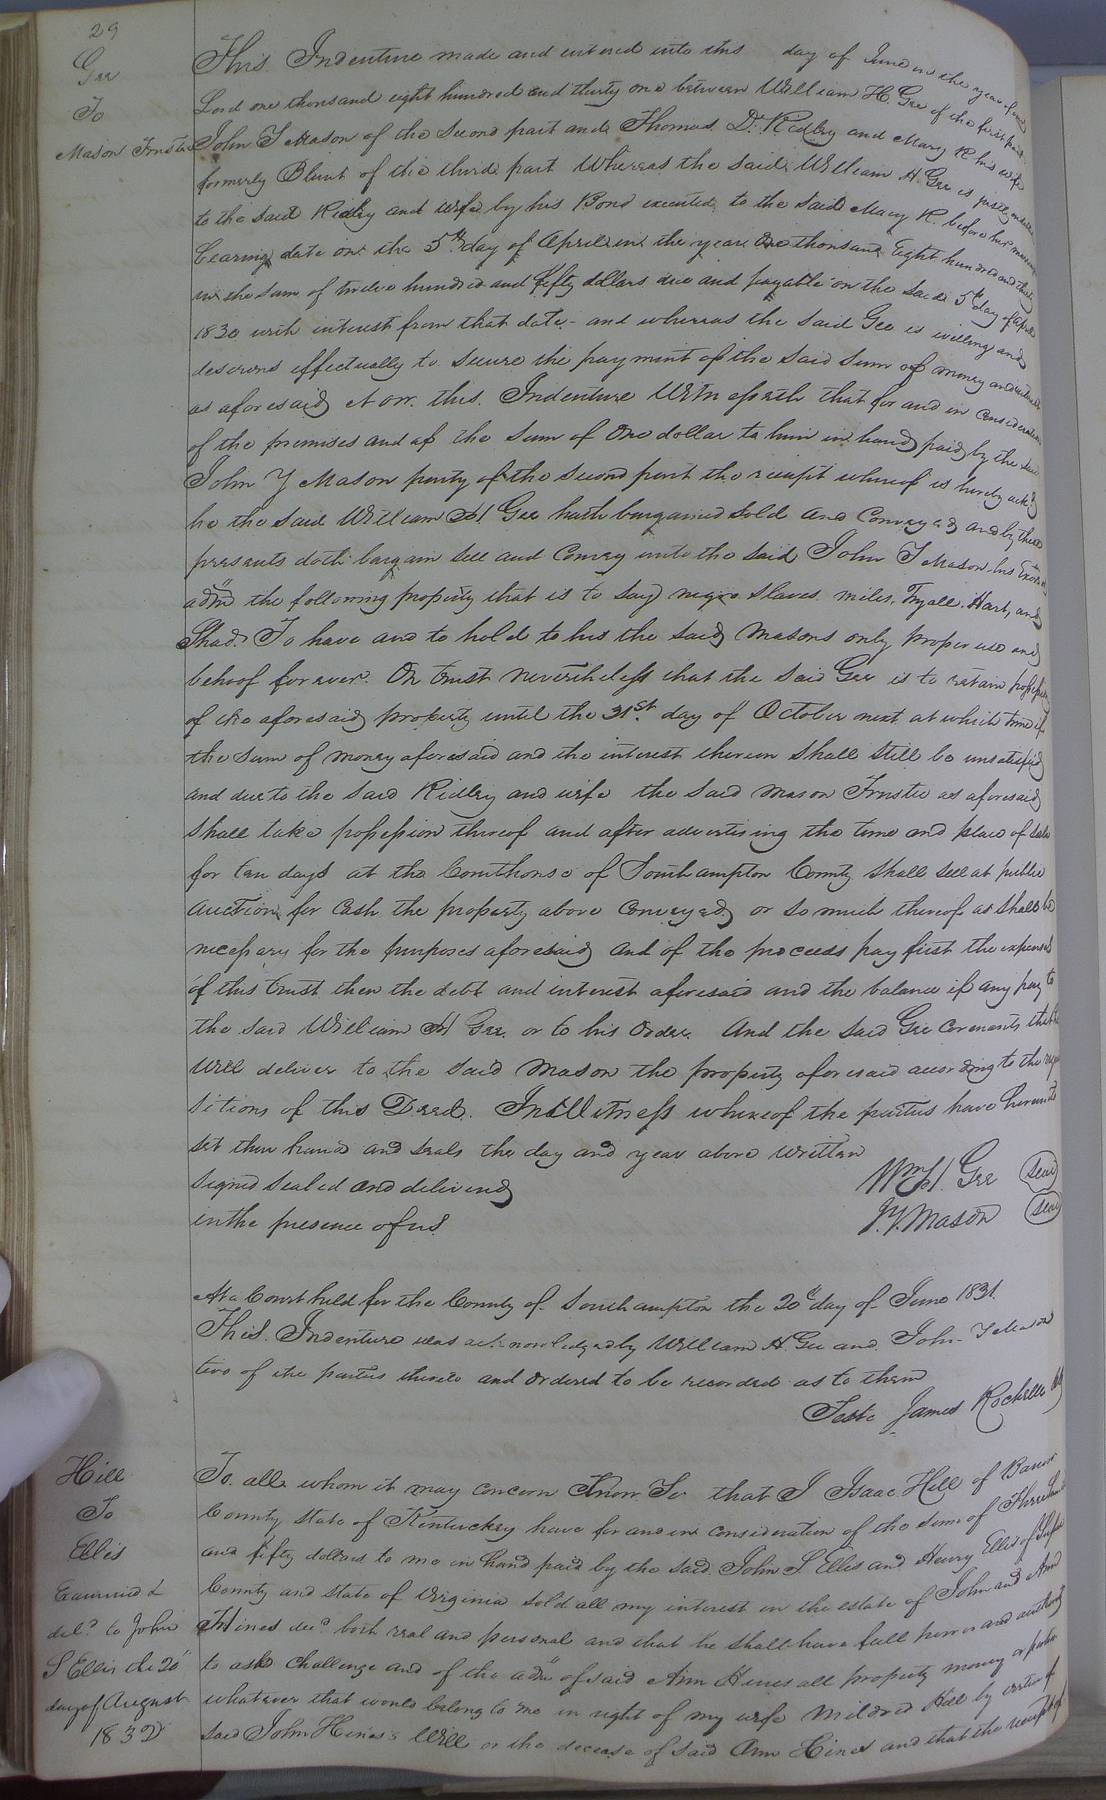 29
Gee
To
Mason Trustee
This Indenture made and entered into this day of June in the year of our
Lord one thousand eight hundred and thirty one between William H. Gee of the first part
John Y Mason of the second part and Thomas D. Ridley and Mary R his wife
formerly Blunt of the third part Whereas the said William H. Gee is justly
to the said Ridley and wife by his Bond executed to the said Mary R. before her
bearing date on the 5th day of April in the year One thousand Eight hundred and thirty
in the sum of twelve hundred and fifty dollars due and payable on the said 5th day of April
1830 with interest from that date - and whereas the said Gee is willing and
desirous effectually to secure the payment of the said sum of money and interest
as aforesaid Now this Indenture Witnesseth that for and in consideration
of the premises and of the sum of One dollar to him in hand paid by the said
John Y Mason party of the second part the receipt whereof is hereby ackd
he the said William H Gee hath bargained sold and Conveyed and by these
presents doth bargain sell and Convey unto the said John Y Mason his Exors
admr the following property that is to say negro slaves miles, Tryall. Hart, and
Shad. To have and to hold to his the said Masons only proper use and
behoof forever. On trust nevertheless that the said Gee is to retain possession
of the aforesaid property until the 31st day of October next at which time if
the sum of money aforesaid and the interest thereon shall still be unsatisfied
and due to the said Ridley and wife the said Mason Trustee as aforesaid
shall take possession thereof and after advertising the time and place of sale
for ten days at the Courthouse of Southampton County shall sell at public
auction for Cash the property above conveyed or so much thereof as shall be
necessary for the purposes aforesaid and of the proceeds pay first the expenses
of this trust then the debt and interest aforesaid and the balance if any pay to
the said William H Gee or to his Order. And the said Gee covenants that he
will deliver to the said Mason the property aforesaid according to the requi
sitions of this Deed. In Witness whereof the parties have hereunto
set their hands and seals the day and year above written
signed sealed and delivered
in the presence of us
Wm H. Gee seal
J.Y. Mason seal
At a Court held for the County of Southampton the 20th day of June 1831.
This Indenture was acknowledged by William H. Gee and John Y Mason
two of the parties thereto and ordered to be recorded as to them
Teste James Rochelle
Hill
To
Ellis
Examined &
deld to John
S Ellis the 20
day of August
1832
To all whom it may concern Know Ye that I Isaac Hill of
County State of Kentuckey have for and in consideration of the sum of Three
and fifty dollars to me in hand paid by the said John S Ellis and Henry Ellis of
County and state of Virginia sold all my interest in the estate of John and Ann
Hines decd both real and personal and that he shall have full power and authority
to ask challenge and of the admr of said Ann Hines all property money or
whatever that would belong to me in right of my wife Mildred Hill by virtue of
said John Hines's Will or the decease of said Ann Hines and that the receipt of